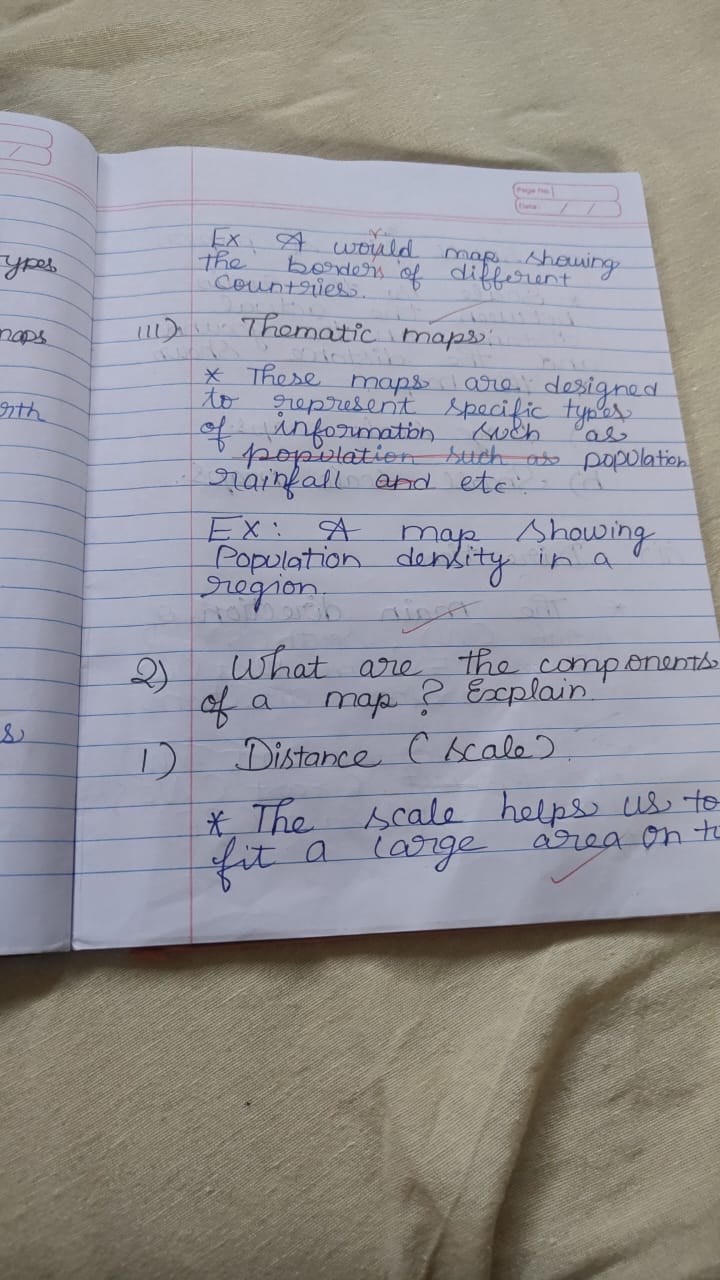 Page No.
Date: / /
ypes
maps
rth
s
Ex: A would map showing
the borders of different
Countries.
III) Thematic maps:
* These maps are designed
to represent specific types
of information such as
population such as population
rainfall and etc.
Ex: A map showing
Population density in a
region.
2) What are the components
of a map? Explain.
1) Distance (scale)
* The scale helps us to
fit a large area on